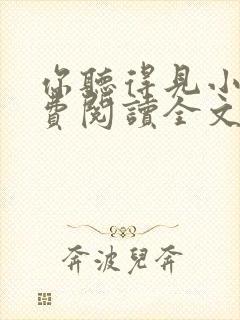 你聽得見小
費閱讀全文
奔波兒奔